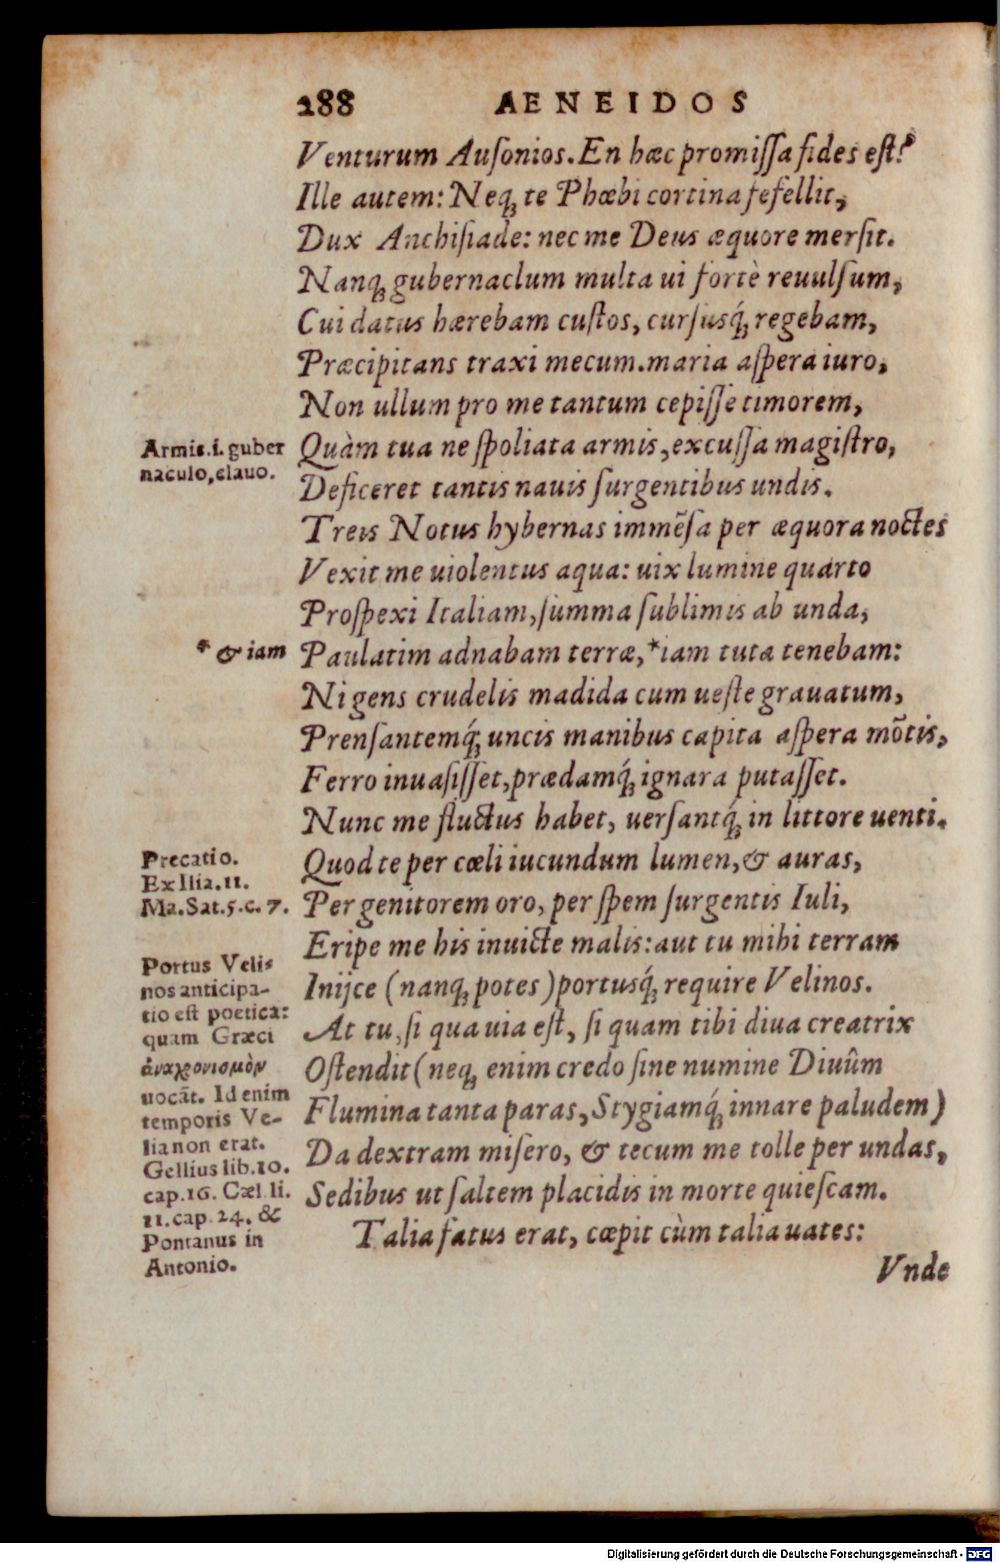 288 AENEIDOS
Venturum Auſonios. En hæc promiſſa fides eſt?
Ille autem: Neq́ꝫ te Phœbi cortina fefellit,
Dux Anchiſiade: nec me Deus æquore merſit.
Nanqꝫ gubernaclum multa ui fortè reuulſum,
Cui datus hærebam cuſtos, curſusq́ꝫ regebam,
Præcipitans traxi mecum. maria aſpera iuro,
Non ullum pro me tantum cepiſſe timorem,
Armis.i. guber
naculo, clauo.
Quàm tua ne ſpoliata armis, excuſſa magiſtro,
Deficeret tantis nauis ſurgentibus undis.
Treis Notus hybernas immẽſa per æquora noctes
Vexit me uiolentus aqua: uix lumine quarto
Proſpexi Italiam, ſumma ſublimis ab unda,
* & iam
Paulatim adnabam terræ, *iam tuta tenebam:
Ni gens crudelis madida cum ueſte grauatum,
Prenſantemq́ꝫ uncis manibus capita aſpera mõtis,
Ferro inuaſiſſet, prædamq́ꝫ ignara putaſſet.
Nunc me fluctus habet, uerſantq́ꝫ in littore uenti.
Precatio.
Ex Ilia.11.
Ma.Sat.5.c.7.
Quod te per cœli iucundum lumen, & auras,
Per genitorem oro, per ſpem ſurgentis Iuli,
Eripe me his inuicte malis: aut tu mihi terram
Portus Veli-
nos anticipa-
tio eſt poetica:
quam Græci
ἀναχρονισμὸν
uocãt. Id enim
temporis Ve-
lia non erat.
Gellius lib.10.
cap.16. Cæl. li.
11. cap. 24. &
Pontanus in
Antonio.
Inijce (nanqꝫ potes) portusq́ꝫ require Velinos.
At tu, ſi qua uia eſt, ſi quam tibi diua creatrix
Oſtendit (neqꝫ enim credo ſine numine Diuûm
Flumina tanta paras, Stygiamq́ꝫ innare paludem)
Da dextram miſero, & tecum me tolle per undas,
Sedibus ut ſaltem placidis in morte quieſcam.
Talia fatus erat, cœpit cùm talia uates:
Vnde
Digitalisierung gefördert durch die Deutsche Forschungsgemeinschaft - DFG